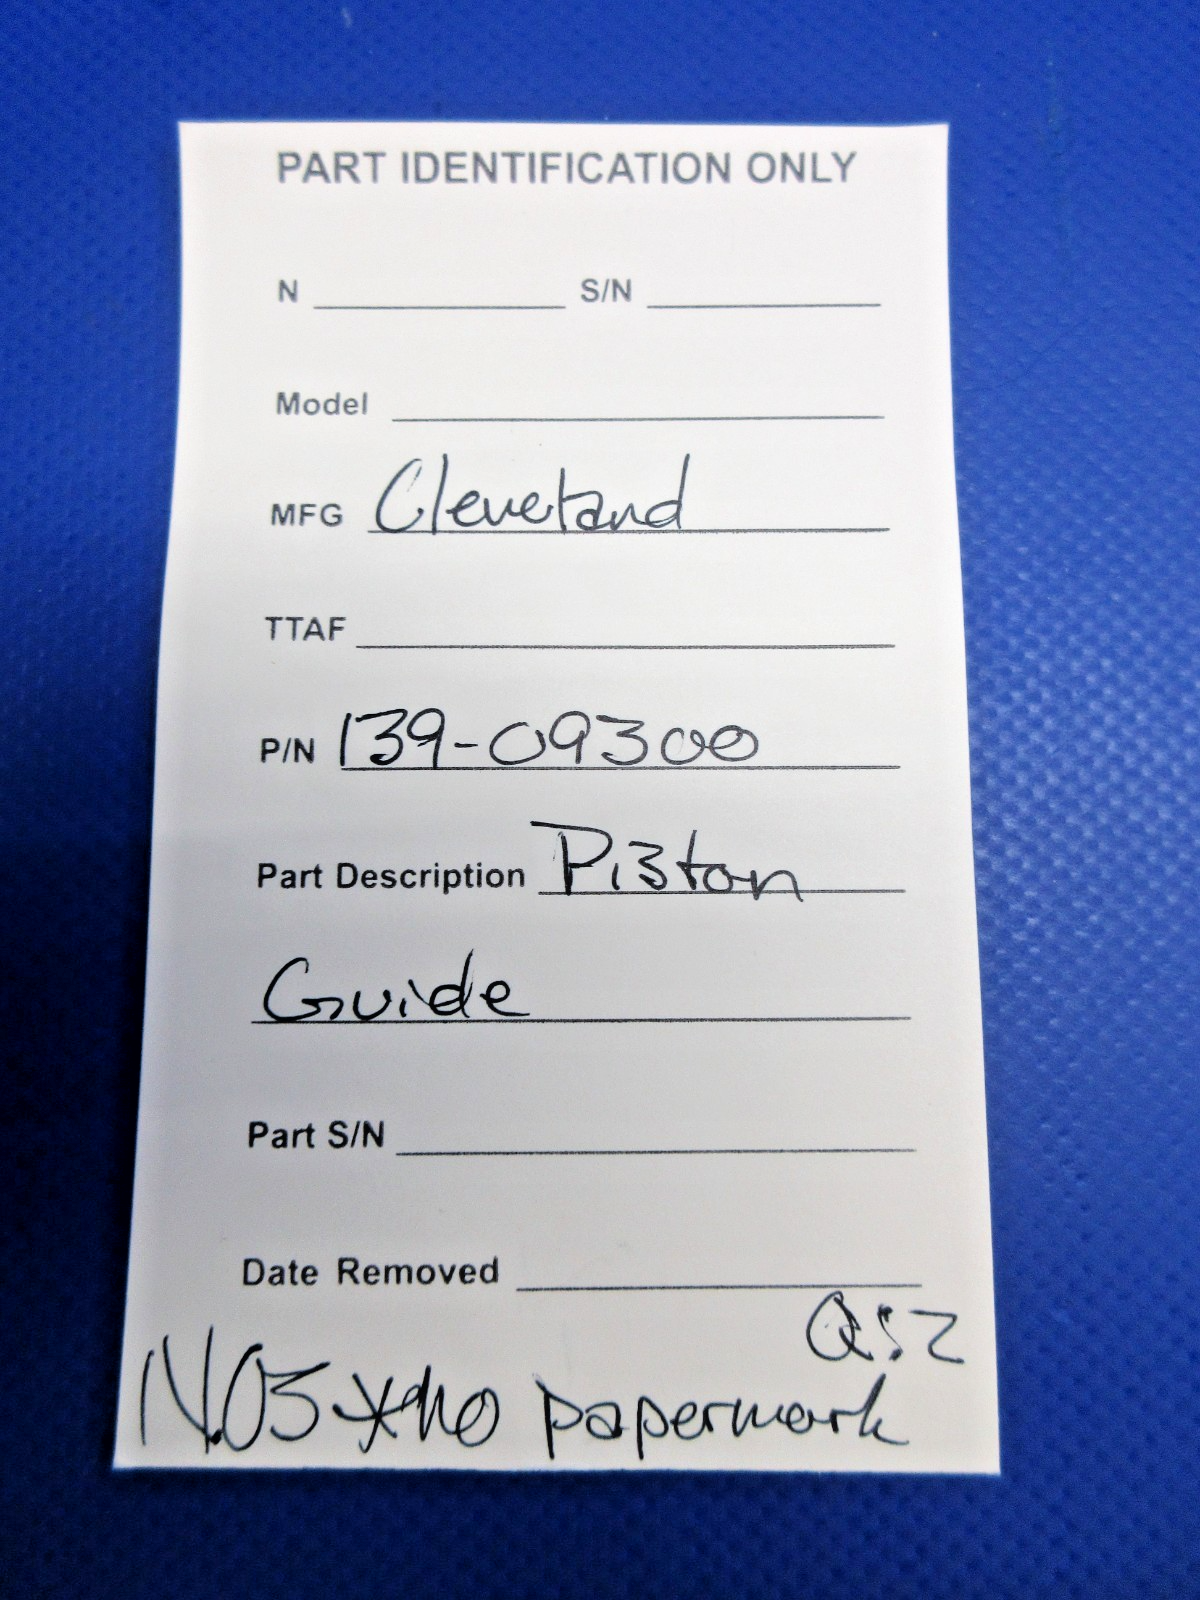 PART IDENTIFICATION ONLY
N S/N
Model
MFG Cleveland
TTAF
P/N 139-09300
Part Description Piston
Guide
Part S/N
Date Removed
Q:2
NOS * no paperwork